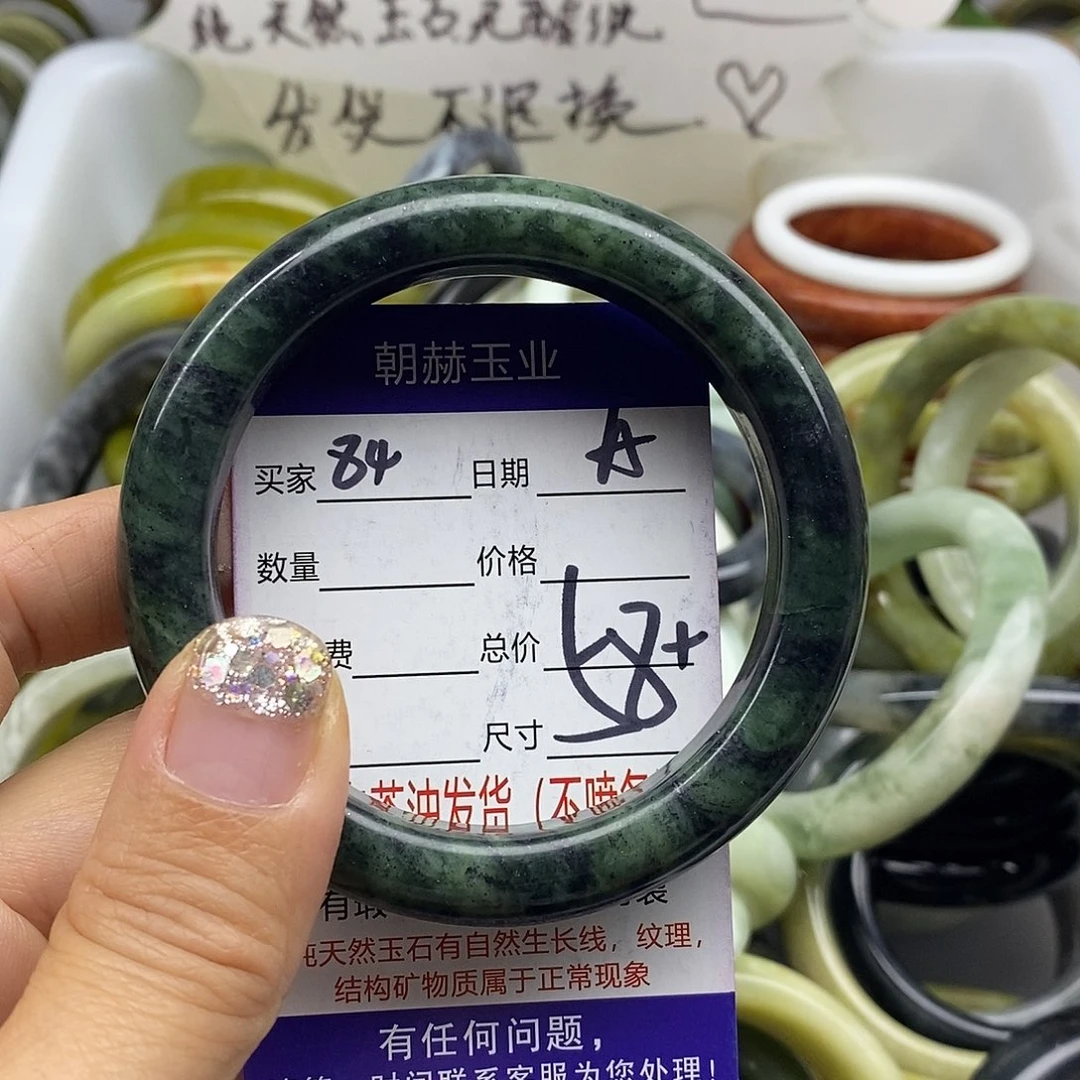 纯天然玉石无酸洗
售出不退换
朝赫玉业
买家 84 日期 A
数量 价格
费 总价 58+
尺寸
茶油发货（不喷
有瑕
纯天然玉石有自然生长线，纹理，
结构矿物质属于正常现象
有任何问题，
时间联系客服为您处理！